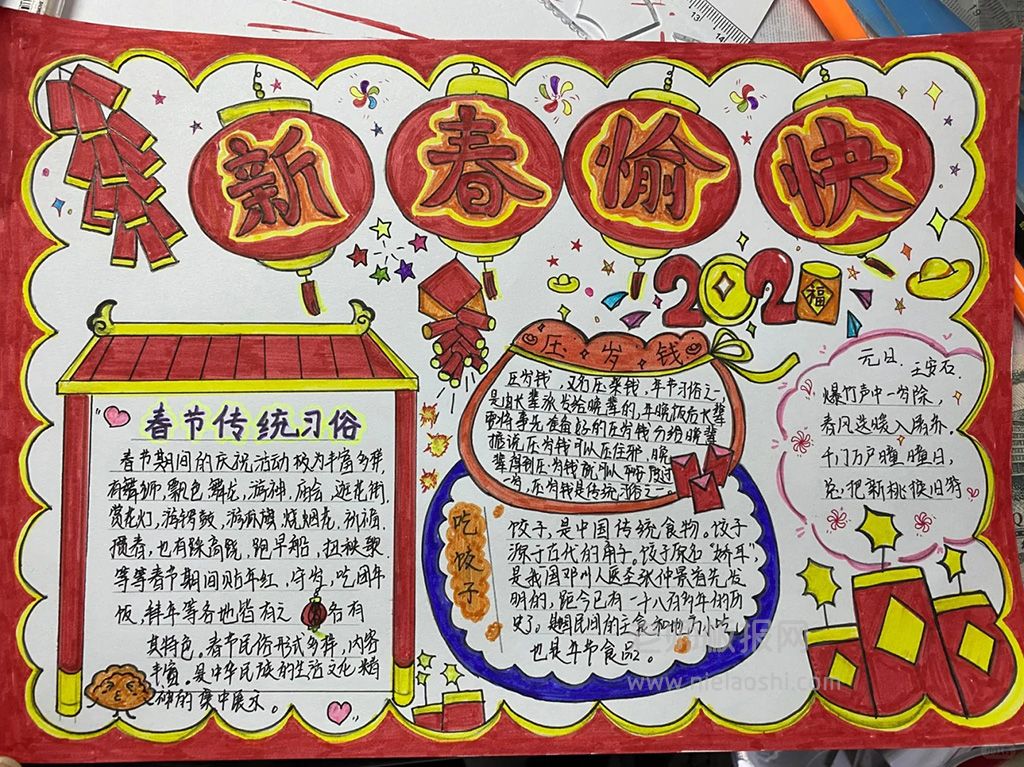 新春愉快
2021
福
春节传统习俗
春节期间的庆祝活动极为丰富多样,
有舞狮,飘色,舞龙,游神,庙会,逛花街,
赏花灯,游锣鼓,游标旗,烧烟花,祈福,
掼春,也有踩高跷,跑旱船,扭秧歌
等等春节期间贴年红,守岁,吃团年
饭,拜年等各地皆有之 各有
其特色。春节民俗形式多样,内容
丰富。是中华民族的生活文化精
粹的集中展示。
压岁钱
压岁钱,又名压祟钱,年节习俗之一
是由长辈派发给晚辈的,年晚饭后长辈
要将事先准备好的压岁钱分给晚辈
据说压岁钱可以压住邪,晚
辈得到压岁钱就可以平安度过
一岁,压岁钱是传统习俗之一。
吃饺子
饺子,是中国传统食物。饺子
源于古代的角子。饺子原名"娇耳",
是我国邓州人医圣张仲景首先发
明的,距今已有一千八百多年的历
史了。是国民间的主食和地方小吃,
也是年节食品。
元日. 王安石.
爆竹声中一岁除,
春风送暖入屠苏.
千门万户曈曈日,
总把新桃换旧符
老师板报网
www.nielaoshi.com